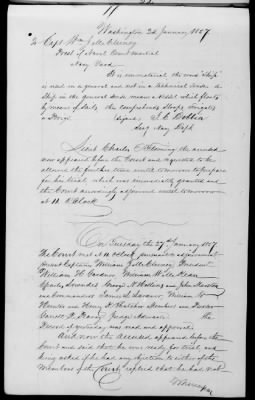 Washington 24 January 1857
To Capt. Wm
Prest of Naval Court Martial
Navy Yard
It is immaterial the word "Ship"
is used in a general and not in a technical sense. A
Ship in the general sense means a vessel which floats
by means of Sails &c comprehends Sloops
& Brigs (signed) J. C. Dobbin
Secy Navy Dept
Lieut Charles Fleming the accused
now appeared before the Court and requested to be
allowed the further time until tomorrow to prepare
for his trial which was unanimously granted and
the Court accordingly adjourned until tomorrow
at 11 O'Clock
On Tuesday the 27th January 1857.
The Court met at 11 oclock pursuant to adjournment
Present Captains William President
William H. Gardner William
George N. Hollins and John
and Commanders James L. Lardner William
and Henry K. Thatcher Members and
Judge Advocate. The
Record of yesterday was read and approved
And now the accused appeared before the
Court and said that he was ready for trial and
being asked if he had any objection to either of the
Members of the Court, replied that he had not